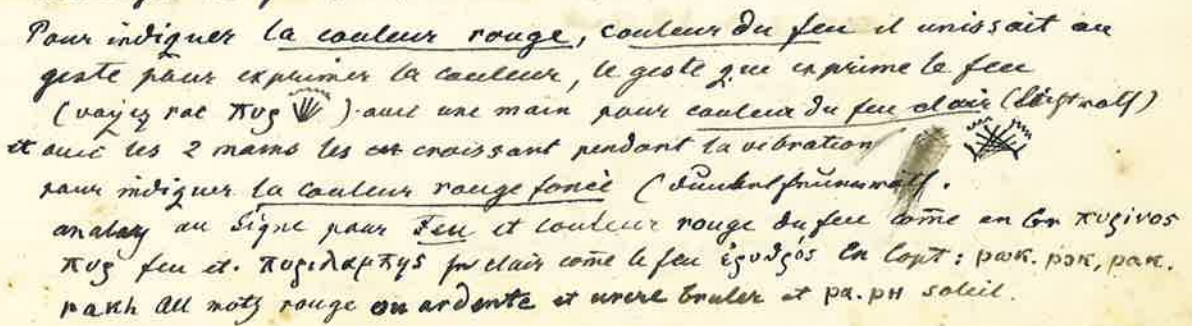 Pour indiquer la couleur rouge, couleur du feu il unissait au
geste pour exprimer la couleur, le geste que exprime le feu
(voyez rac πυρ ) avec une main pour couleur du feu clair (Lichtroth)
et avec les 2 mains les croissant pendant la vibration
pour indiquer la couleur rouge foncé (dunkel
analog au Signe pour Feu et couleur rouge du feu come en Gr πυρινος
πυρ feu et. πυριλαμπης clair come le feu ἐρυθρός En Copt: ρωκ. ρεκ, ρακ.
ρακh All mots rouge ou ardente et urere bruler et ρα. ρн soleil.